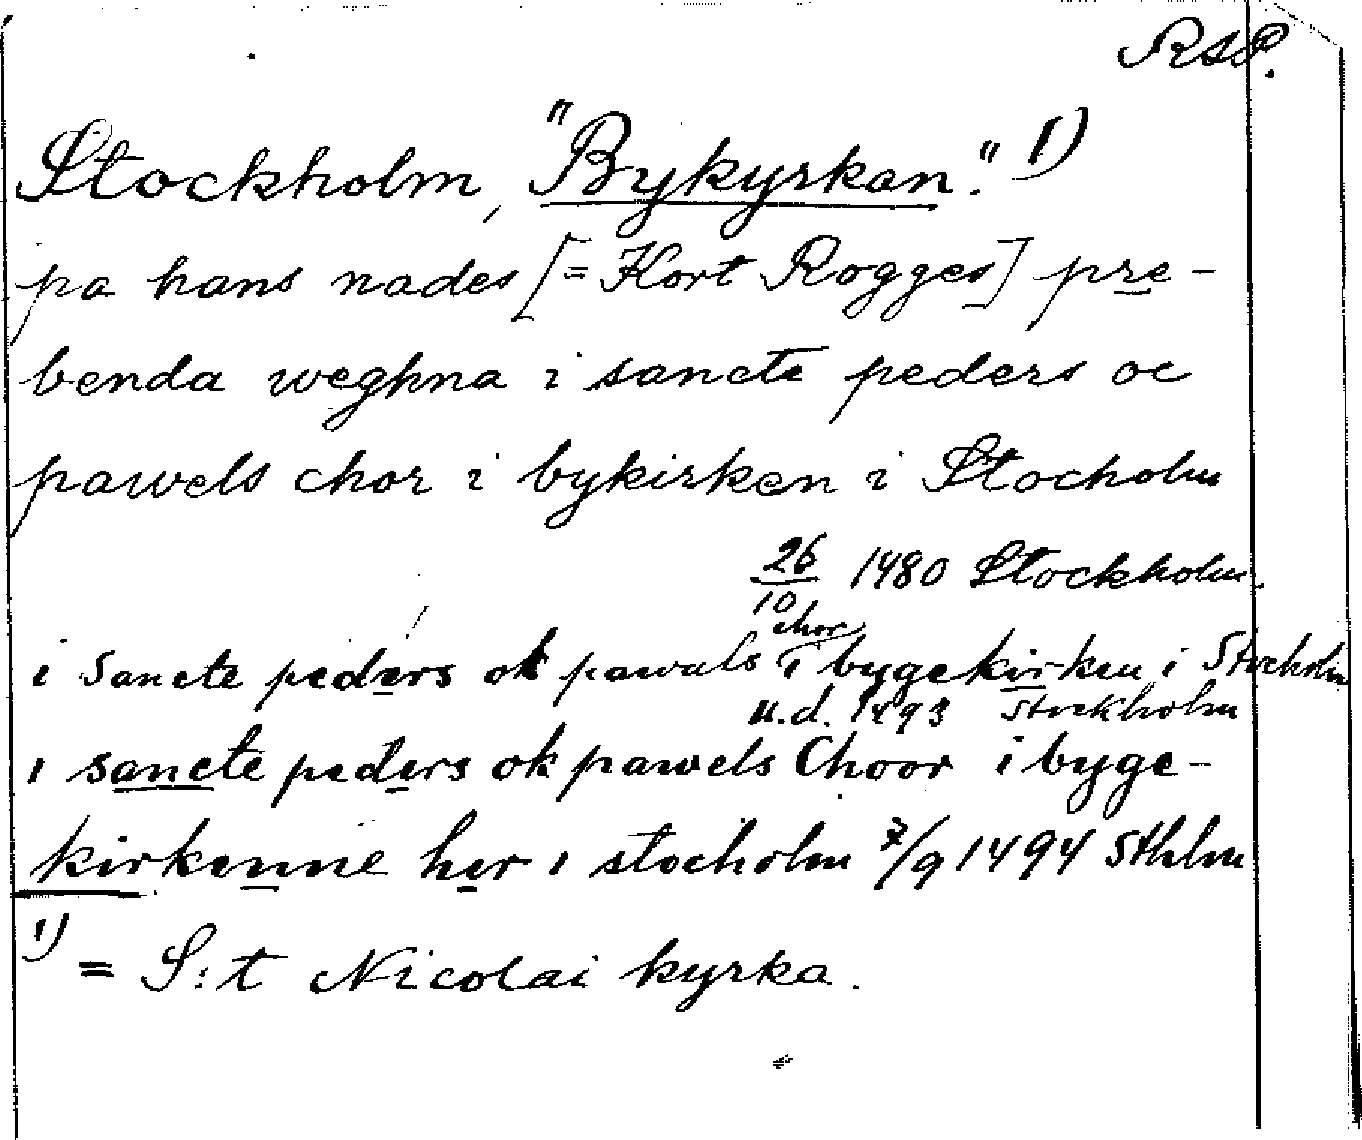 RAP.
Stockholm, "Bykyrkan". 1)
pa hans nades [= Kort Rogges] pre-
benda weghna i sancte peders oc
pawels chor i bykirken i Stocholm
26/10 1480 Stockholm.
i Sancte peders ok pawals chor i bygekirken i Stocholm
u.d. 1493 Stockholm
i sancte peders ok pawels Choor i byge-
kirkenne her i stocholm 7/9 1494 Sthlm
1) = S:t Nicolai kyrka.